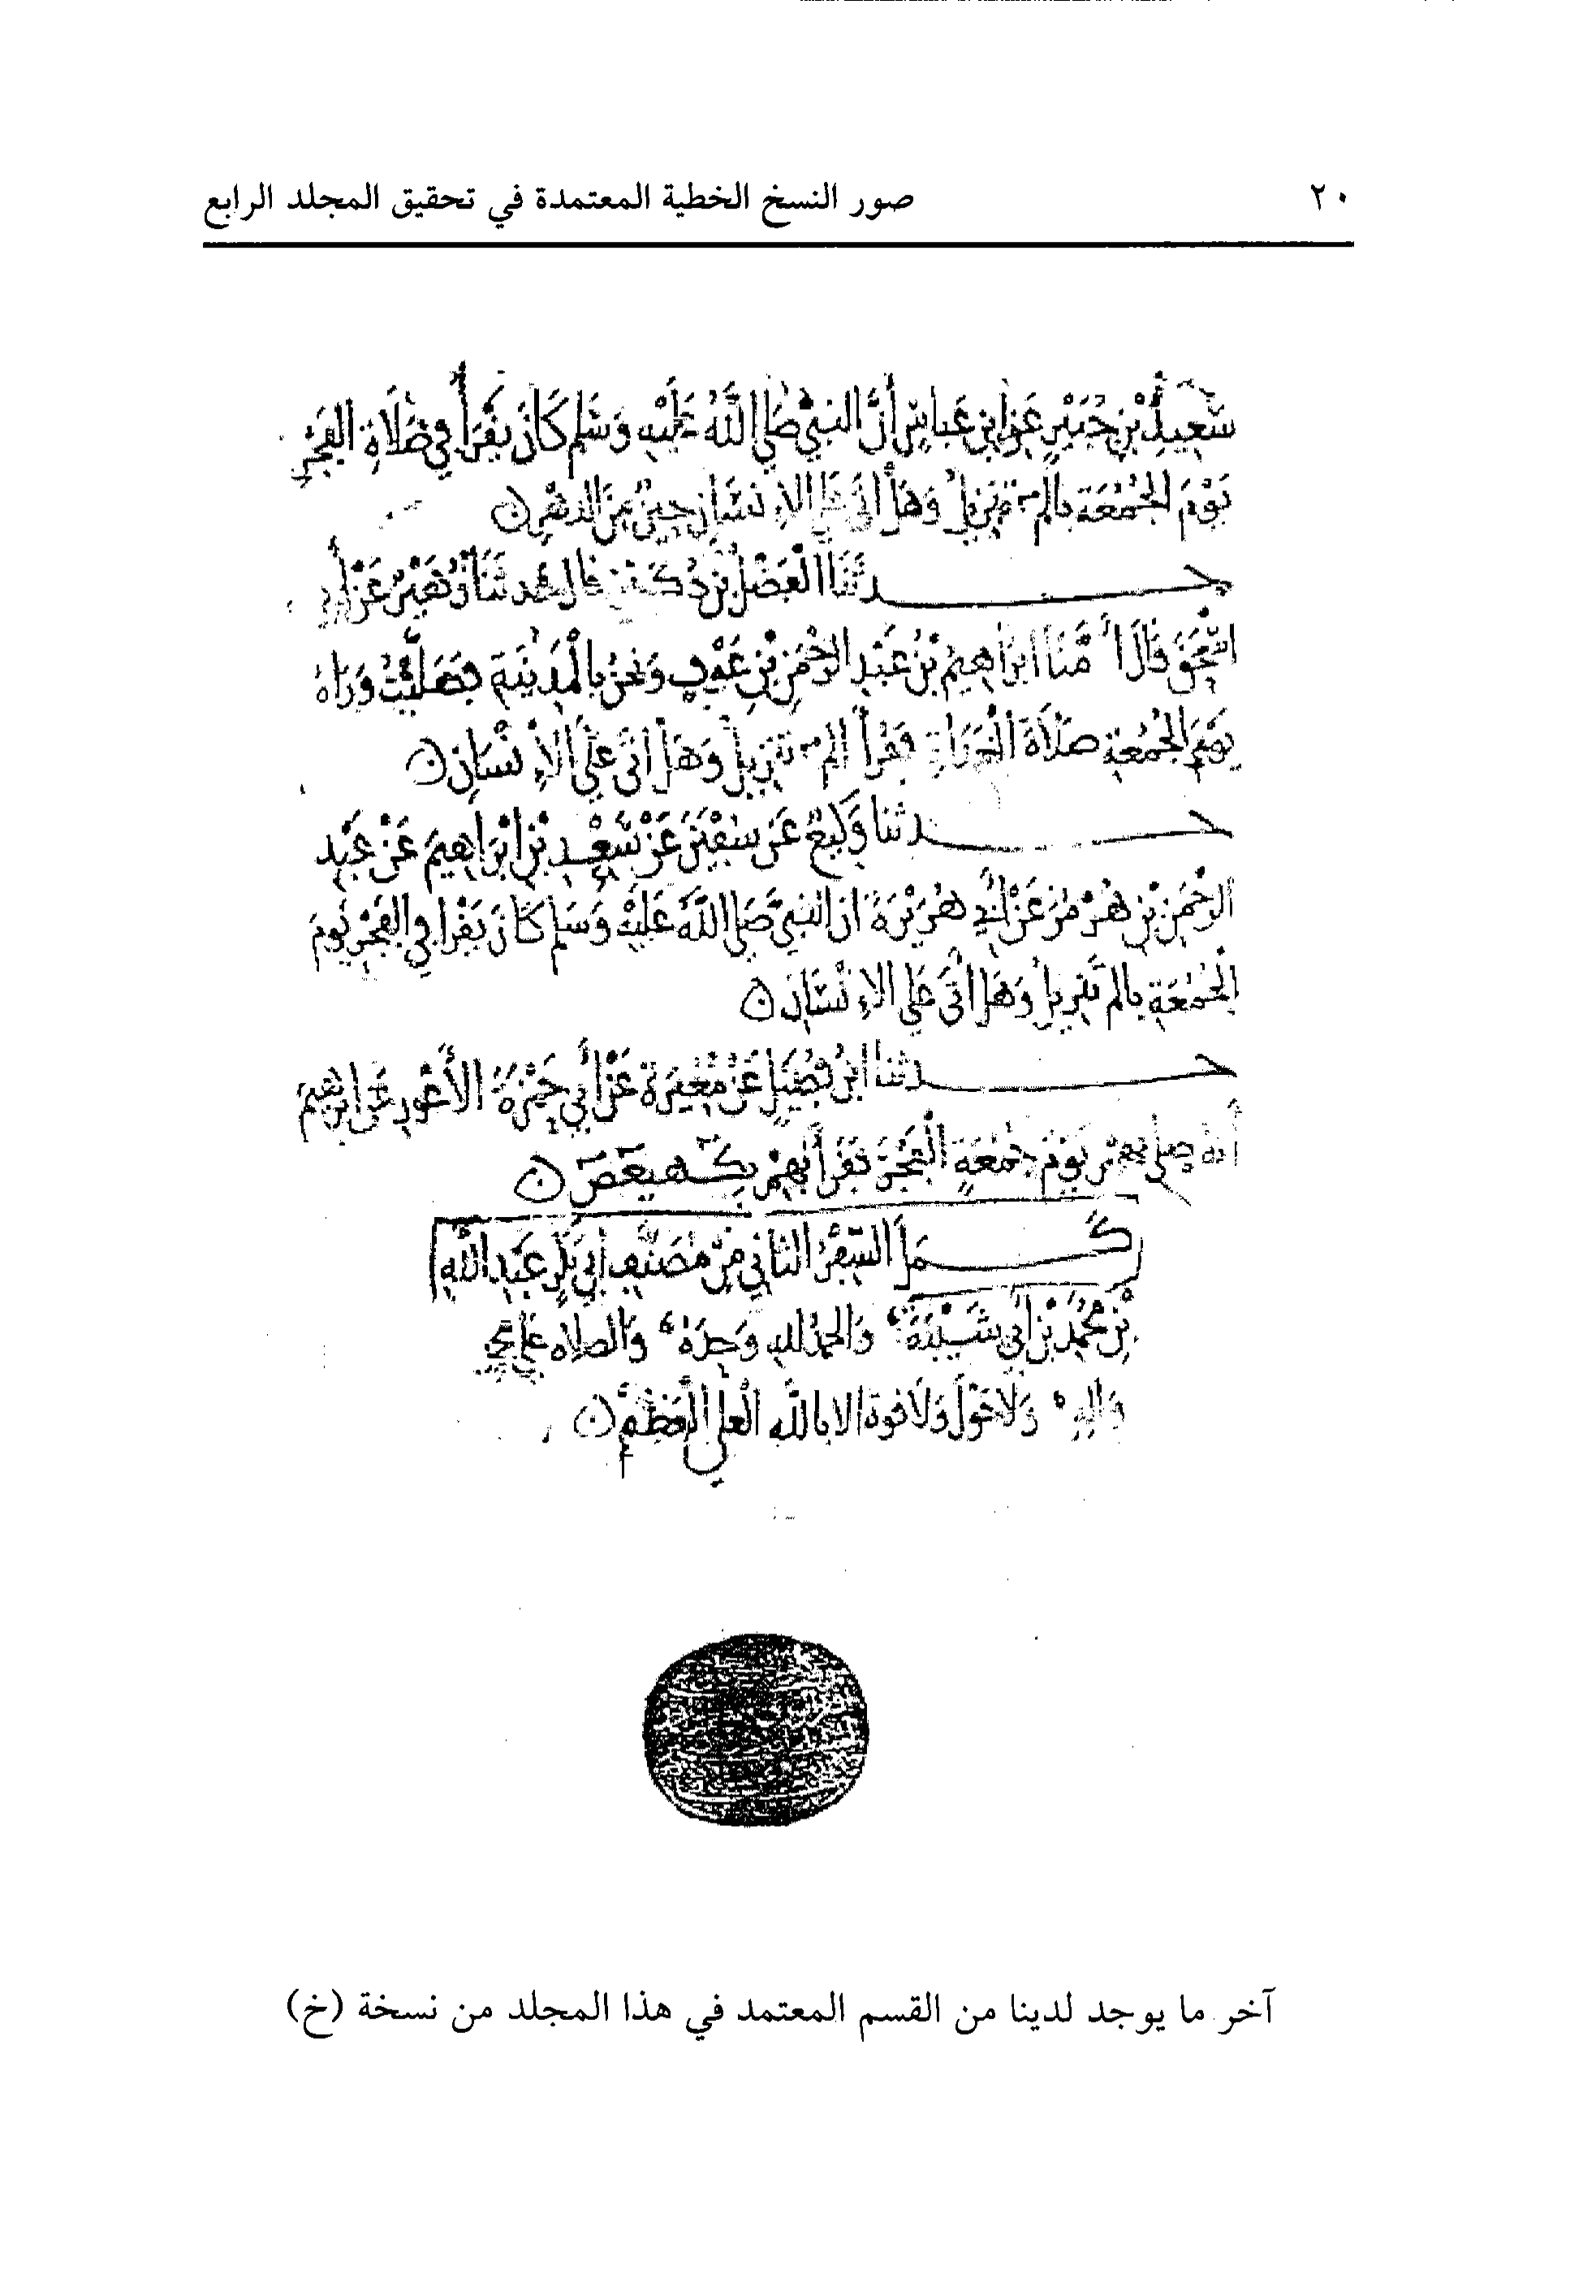 ٢٠
صور النسخ الخطية المعتمدة في تحقيق المجلد الرابع
سَعِيدِ بْنِ جُبَيْرٍ عَنِ ابْنِ عَبَّاسٍ أَنَّ النَّبِيَّ صَلَّى اللَّهُ عَلَيْهِ وَسَلَّمَ كَانَ يَقْرَأُ فِي صَلَاةِ الْفَجْرِ
يَوْمَ الْجُمُعَةِ بِالم تَنْزِيلُ وَهَلْ أَتَى عَلَى الْإِنْسَانِ حِينٌ مِنَ الدَّهْرِ
حدثنا الفَضْلُ بْنُ دُكَيْنٍ قال حدثنا زُهَيْرٌ عَنْ أَبِي
اسْحَقَ قَالَ أَمَّنَا ابْرَاهِيمُ بْنُ عَبْدِ الرَّحْمَنِ بْنِ عَوْفٍ وَنَحْنُ بِالْمَدِينَةِ فَصَلَّيْتُ وَرَاهُ
يَوْمَ الْجُمُعَةِ صَلَاةَ الْغَدَاةِ فَقَرَأَ الم تَنْزِيلُ وَهَلْ أَتَى عَلَى الْإِنْسَانِ
حدثنا وَكِيعٌ عَنْ سُفْيَنَ عَنْ سَعْدِ بْنِ ابْرَاهِيمَ عَنْ عَبْدِ
الرَّحْمَنِ بْنِ هُرْمُزَ عَنْ أَبِي هُرَيْرَةَ ان النَّبِيَّ صَلَّى اللَّهُ عَلَيْهِ وَسَلَّمَ كَانَ يَقْرَا فِي الْفَجْرِ يَوْمَ
الْجُمُعَةِ بِالم تَنْزِيلُ وَهَلْ أَتَى عَلَى الْإِنْسَانِ
حدثنا ابْنُ فُضَيْلٍ عَنْ مُغِيرَةَ عَنْ أَبِي حَمْزَةَ الْأَعْوَرِ عَنْ ابرهيم
أنه صلى بهم يَوْمَ جُمُعَةٍ الْفَجْرَ فَقَرَأَ بِهِمْ بِكهيعص
كَمَلَ السِّفْرُ الثَّانِي مِنْ مُصَنَّفِ أَبِي بَكْرٍ عَبْدِ اللَّهِ
بْنِ مُحَمَّدِ بْنِ أَبِي شَيْبَةَ وَالْحَمْدُ لِلَّهِ وَحْدَهُ وَالصلاه على محمد
وَالِهِ وَلَا حَوْلَ وَلَا قُوة الا بالله العلي العظيم
آخر ما يوجد لدينا من القسم المعتمد في هذا المجلد من نسخة (خ)